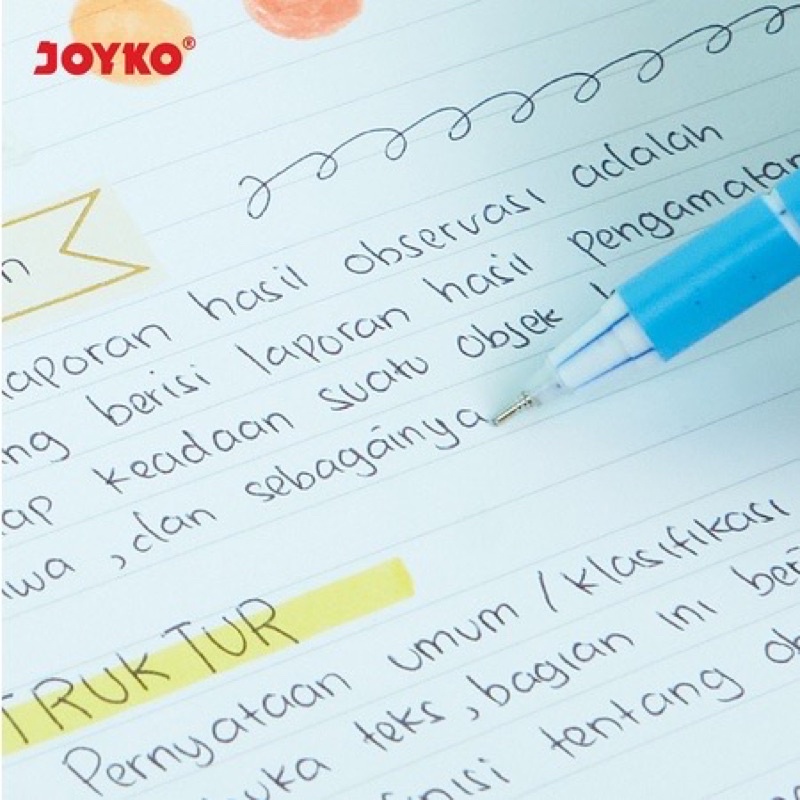 JOYKO®
n
laporan hasil observasi adalah
ng berisi laporan hasil pengamatan
ap keadaan suatu objek
iwa, dan sebagainya
TRUKTUR
Pernyataan umum / klasifikasi
buka teks, bagian ini ber
inisi tentang ob